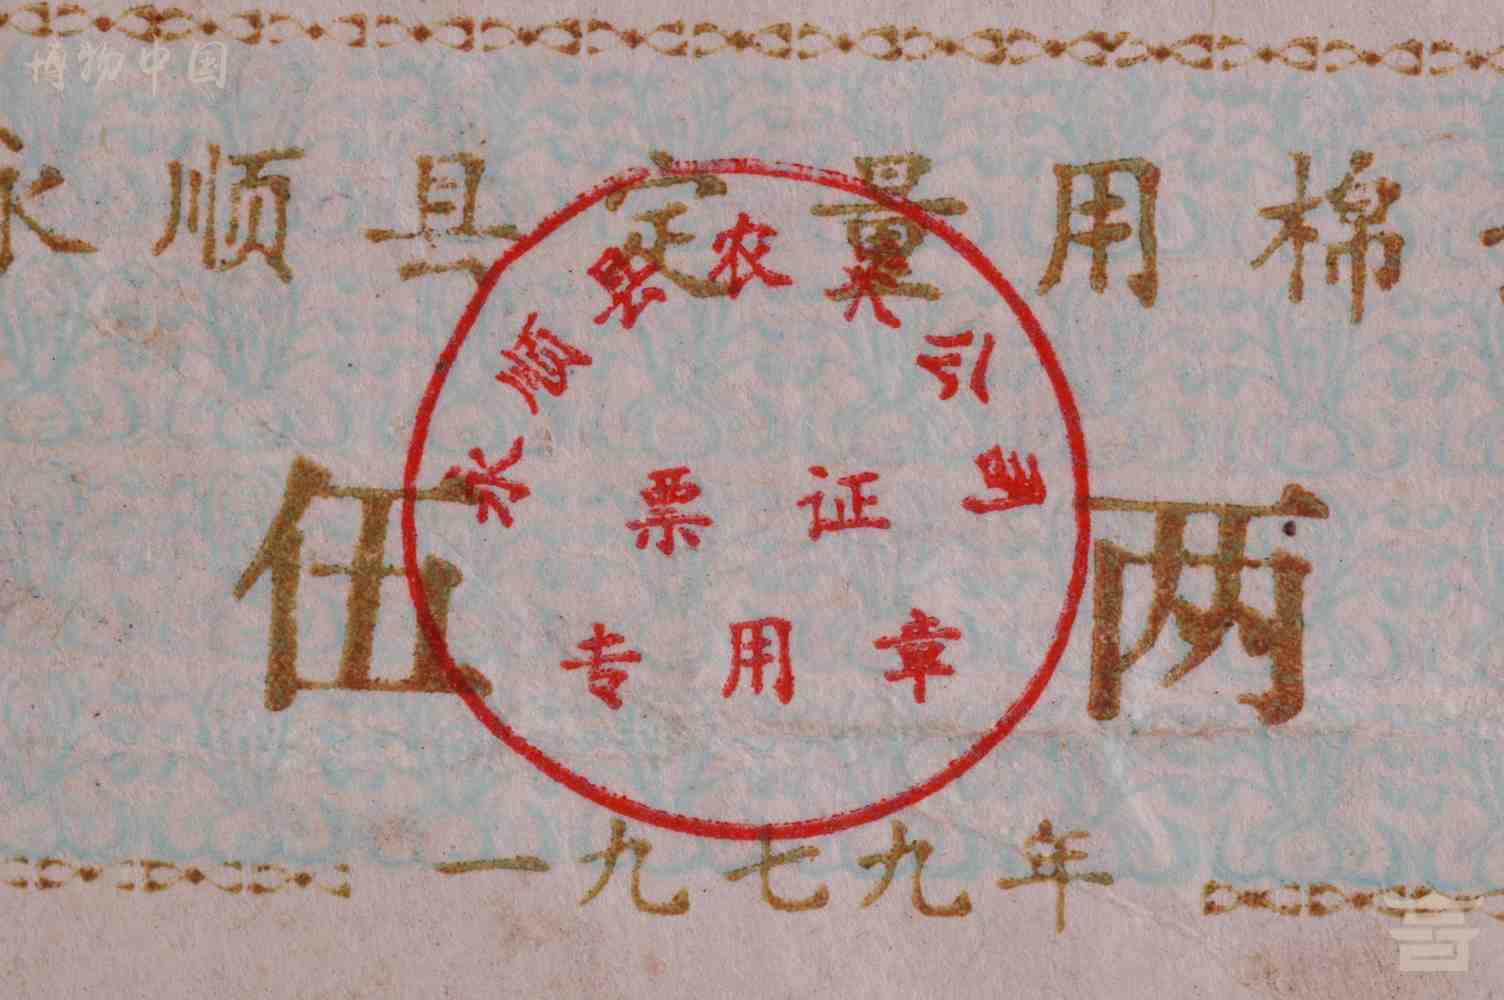 博物中国
永顺县定量用棉
永顺县农業公司
票证
专用章
伍两
一九七九年